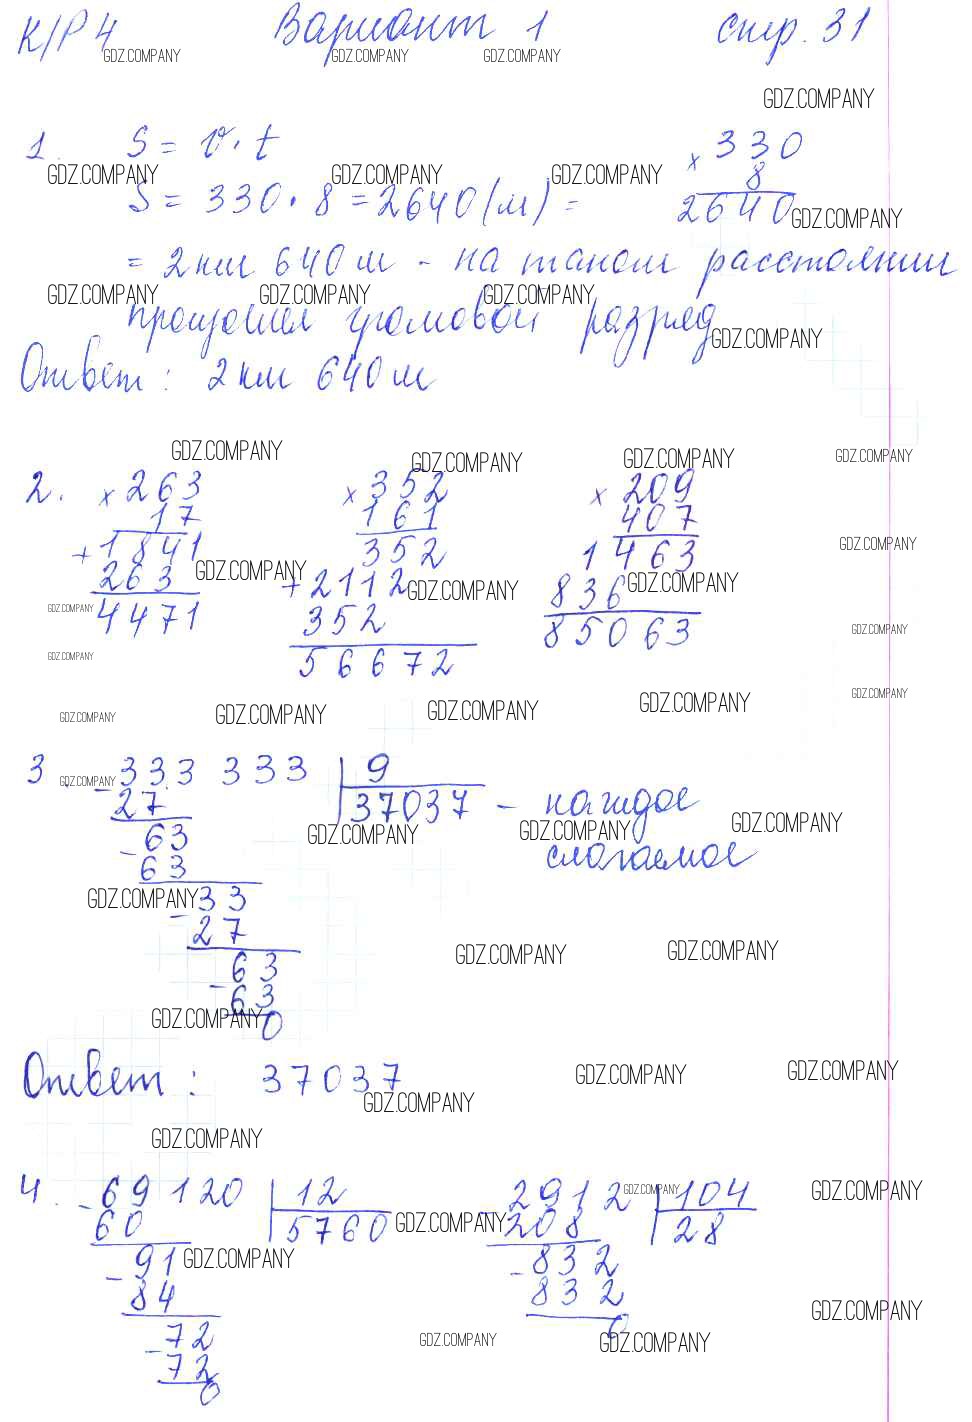 К/Р 4 Вариант 1 стр. 31
GDZ.COMPANY GDZ.COMPANY GDZ.COMPANY
GDZ.COMPANY
1. S = v · t
× 330
8
2640
GDZ.COMPANY GDZ.COMPANY GDZ.COMPANY
S = 330 · 8 = 2640 (м) =
GDZ.COMPANY
= 2 км 640 м - на таком расстоянии
GDZ.COMPANY GDZ.COMPANY GDZ.COMPANY
произошел громовой разряд
GDZ.COMPANY
Ответ : 2 км 640 м
GDZ.COMPANY GDZ.COMPANY GDZ.COMPANY GDZ.COMPANY
2. × 263
17
+ 1841
263
4471
× 352
161
352
+ 2112
352
56672
× 209
407
1463
836
85063
GDZ.COMPANY
GDZ.COMPANY GDZ.COMPANY GDZ.COMPANY
GDZ.COMPANY GDZ.COMPANY
GDZ.COMPANY
GDZ.COMPANY GDZ.COMPANY GDZ.COMPANY GDZ.COMPANY GDZ.COMPANY
3. - 333 333 | 9
27 37037 - каждое
слагаемое
63
- 63
33
- 27
63
- 63
0
GDZ.COMPANY GDZ.COMPANY GDZ.COMPANY GDZ.COMPANY
GDZ.COMPANY
GDZ.COMPANY GDZ.COMPANY
GDZ.COMPANY
Ответ : 37037
GDZ.COMPANY GDZ.COMPANY
GDZ.COMPANY
GDZ.COMPANY
4. - 69120 | 12
60 5760
91
- 84
72
- 72
0
- 2912 | 104
208 28
- 832
832
0
GDZ.COMPANY GDZ.COMPANY
GDZ.COMPANY
GDZ.COMPANY
GDZ.COMPANY
GDZ.COMPANY GDZ.COMPANY